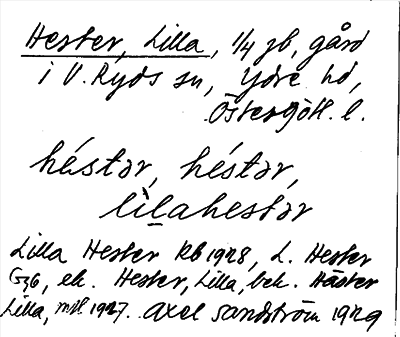 Hester, Lilla, 1/4 jb, gård
i V. Ryds sn, Ydre hd,
Östergötl. l.
héstər, héstər,
lìlahestər
Lilla Hester Rb 1928, L. Hester
G36, ek. Hester, Lilla, bek. Häster
Lilla, mtl 1927. Axel Sandström 1929